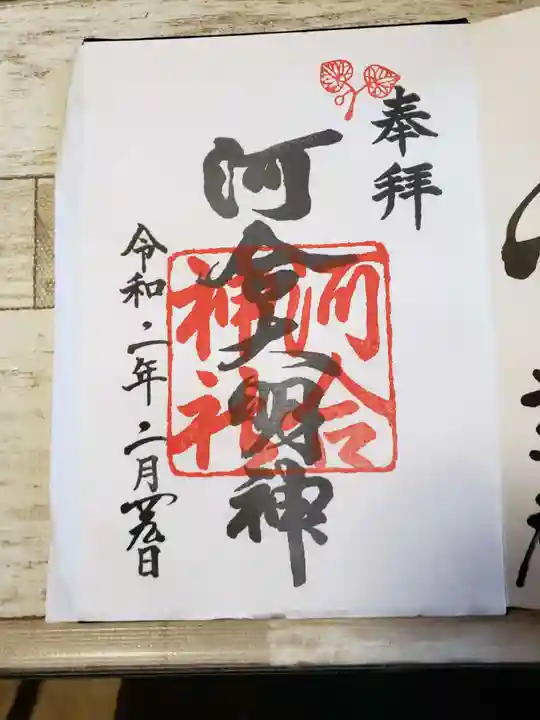 奉拝
河合大明神
河合
神社
令和二年二月廿九日